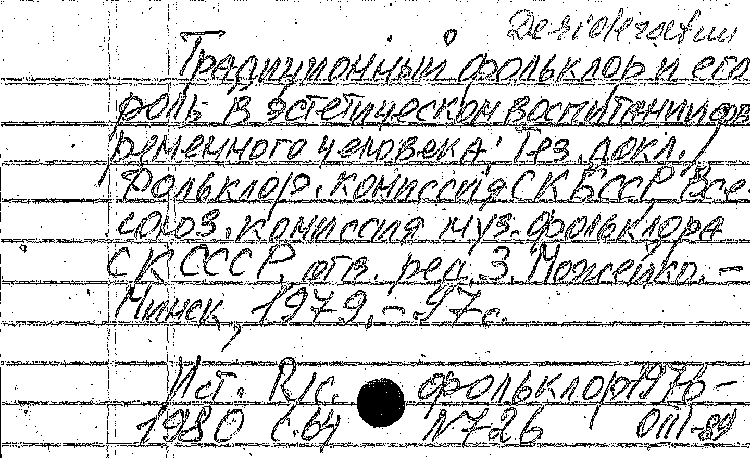 Desideratum
Традиционный фольклор и его
роль в эстетическом воспитании сов
ременного человека: Тез. докл./
Фольклор. комиссия СК БССР Все
союз. комиссия муз. фольклора
СК СССР. отв. ред. З. Можейко. –
Минск, 1979. – 97 с.
Ист. Р/с. фольклор 1976–
1980 с. 64 № 726 ОП-89